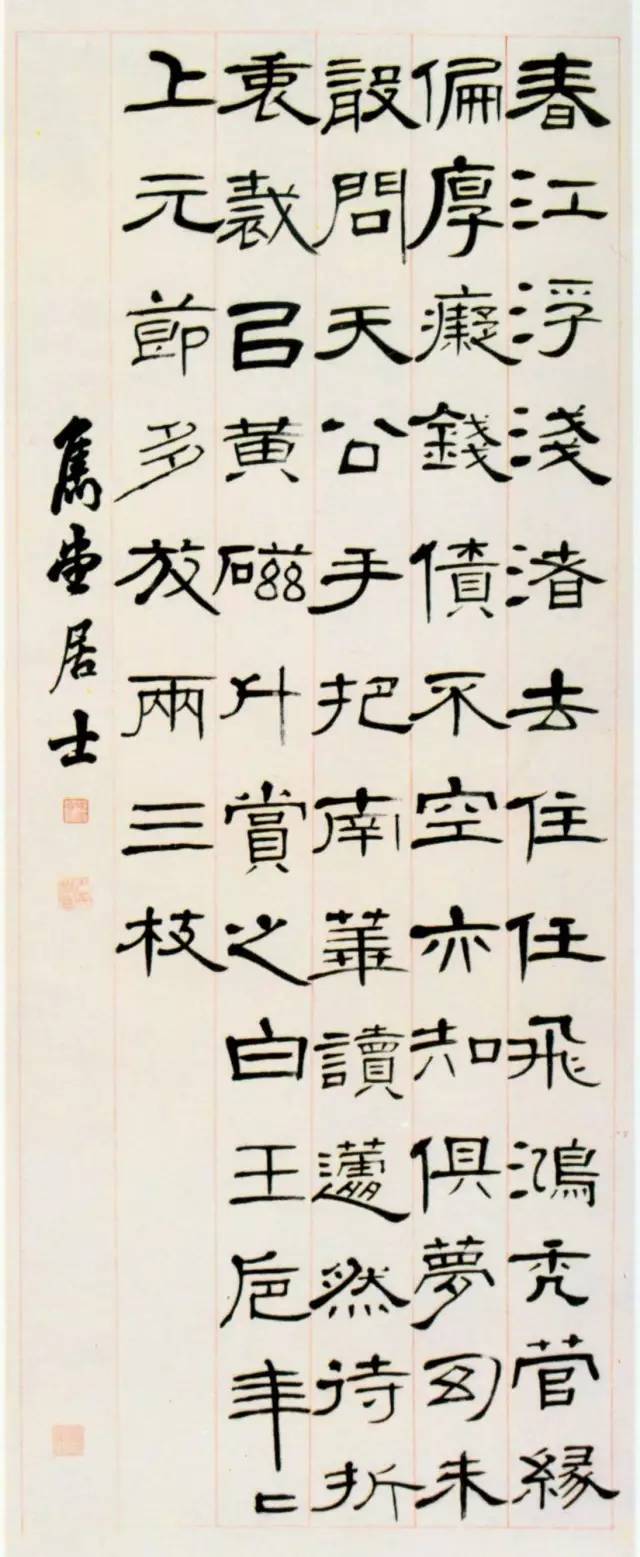 春江浮淺渚去住任飛鴻禿管緣
偏厚癡錢債不空亦知俱夢幻未
敢問天公手把南華讀蘧然待折
衷裁㠯黃磁斗賞之白玉卮年々
上元節多放兩三枝
堂居士